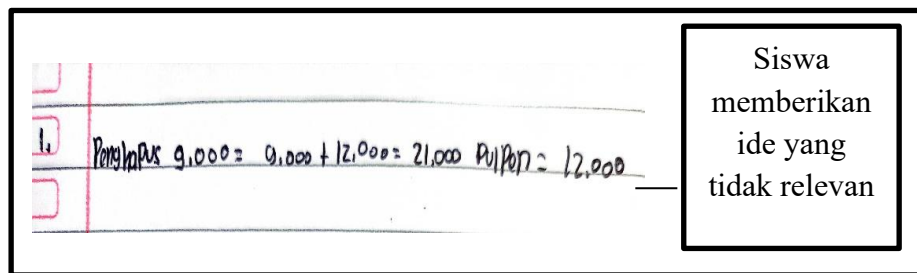 1. Penghapus 9.000 = 9.000 + 12.000 = 21.000 Pulpen = 12.000
Siswa
memberikan
ide yang
tidak relevan